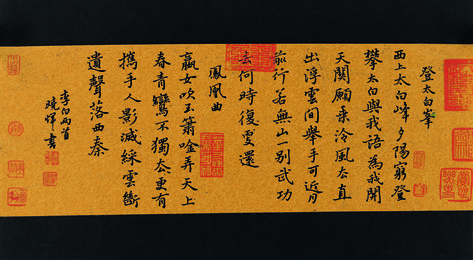 登太白峯
西上太白峰夕陽窮登
攀太白與我語為我開
天關願乘泠風去直
出浮雲間舉手可近月
前行若無山一別武功
去何時復更還
鳳凰曲
嬴女吹玉簫吟弄天上
春青鸞不獨去更有
攜手人影滅綵雲斷
遺聲落西秦
李白兩首
曉輝書